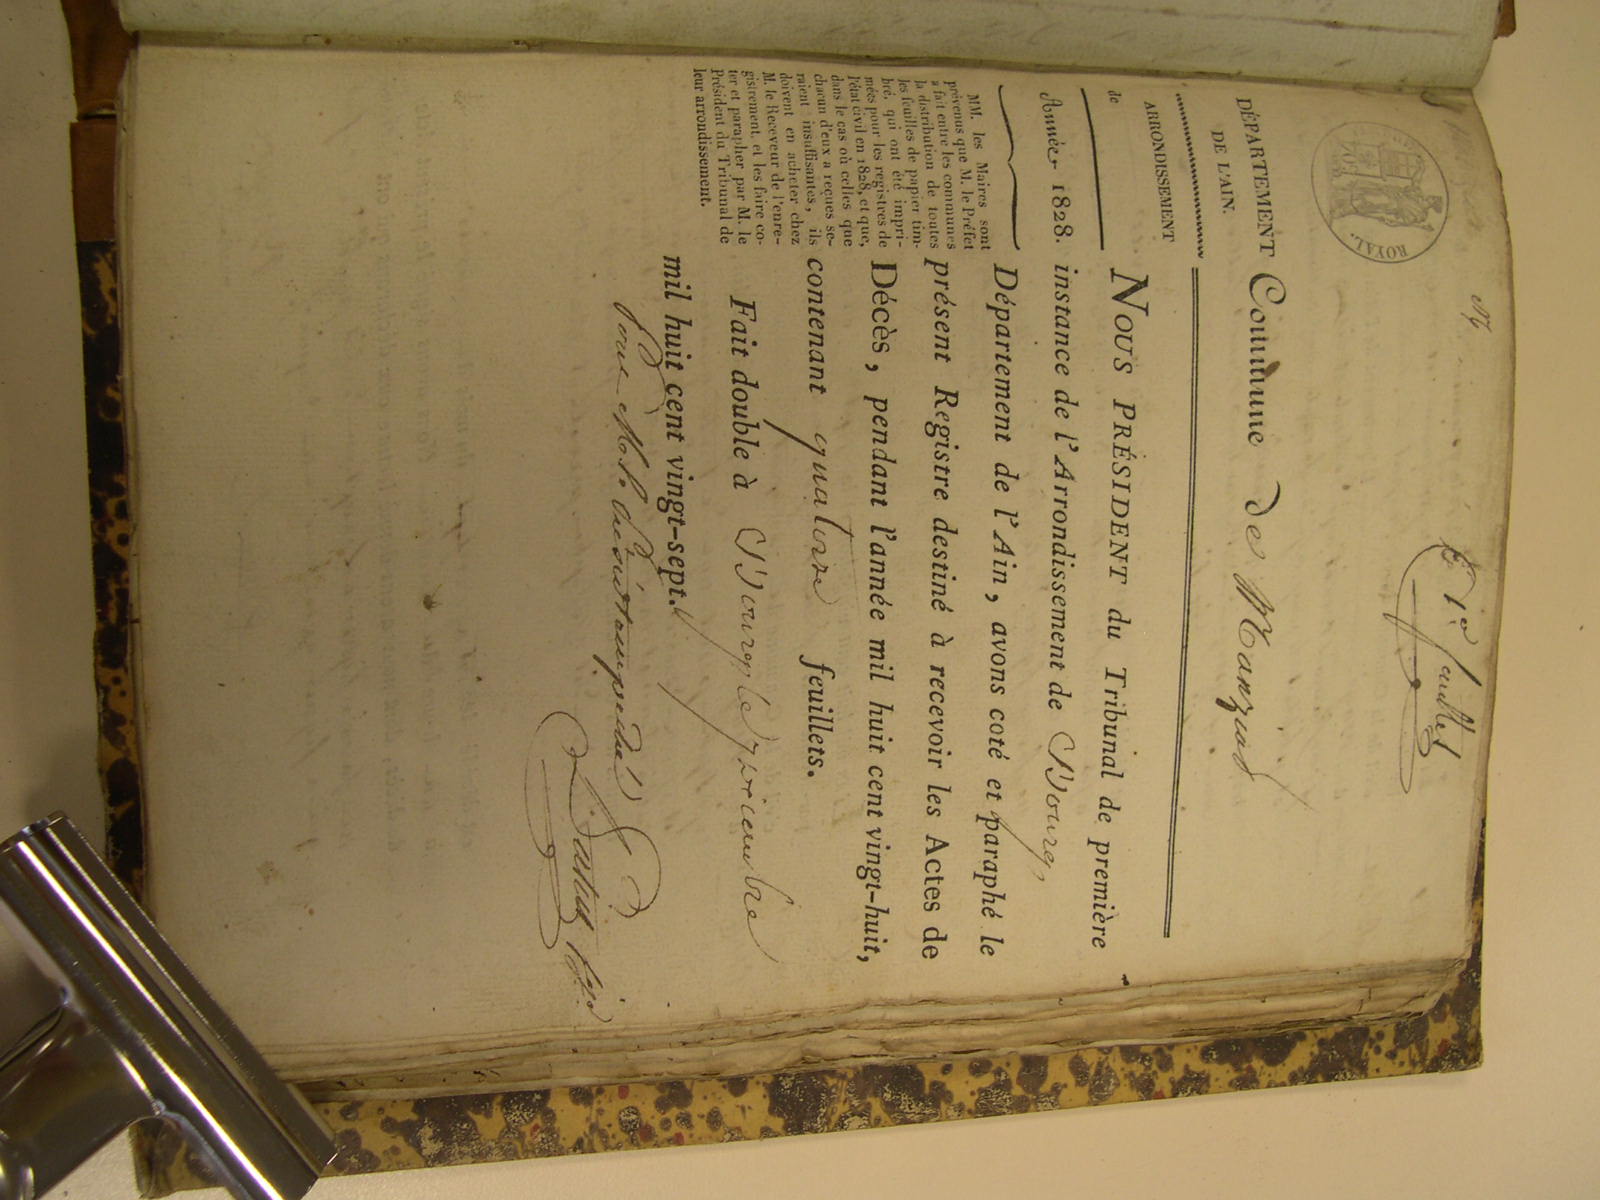 1er feuillet
ROYAL.
DÉPARTEMENT
DE L'AIN.
ARRONDISSEMENT
de
Année 1828.
MM. les Maires sont
prévenus que M. le Préfet
a fait entre les communes
la distribution de toutes
les feuilles de papier tim-
bré, qui ont été impri-
mées pour les registres de
l'état civil en 1828, et que,
dans le cas où celles que
chacun d'eux a reçues se-
raient insuffisantes, ils
doivent en acheter chez
M. le Receveur de l'enre-
gistrement, et les faire co-
ter et parapher par M. le
Président du Tribunal de
leur arrondissement.
Commune de Manziat
NOUS PRÉSIDENT du Tribunal de première
instance de l'Arrondissement de Bourg,
Département de l'Ain, avons coté et paraphé le
présent Registre destiné à recevoir les Actes de
Décès, pendant l'année mil huit cent vingt-huit,
contenant quatorze feuillets.
Fait double à Bourg le 7 décembre
mil huit cent vingt-sept.
pour M. le président empêché